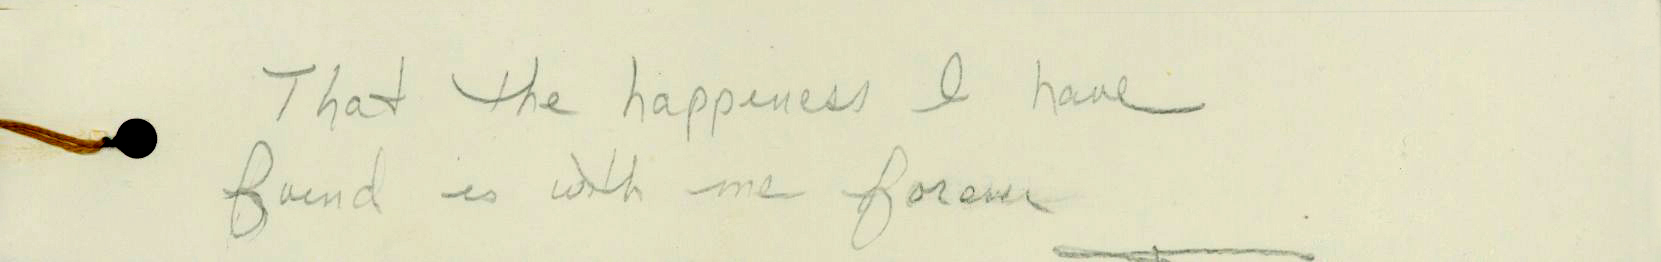 That the happiness I have
found is with me forever